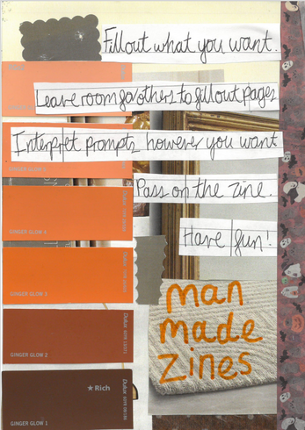 Fill out what you want.
Leave room for others to fill out pages
Interpret prompts however you want
Pass on the zine.
Have fun!
man
made
zines
GINGER GLOW 4
GINGER GLOW 3
GINGER GLOW 2
★ Rich
GINGER GLOW 1